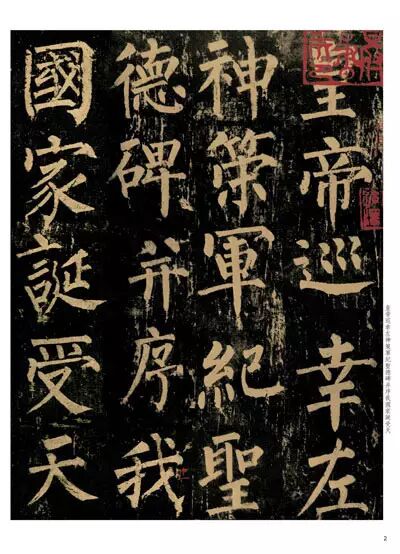 皇帝巡幸左
神策軍紀聖
德碑并序我
國家誕受天
皇帝巡幸左神策軍紀聖德碑并序我國家誕受天
2